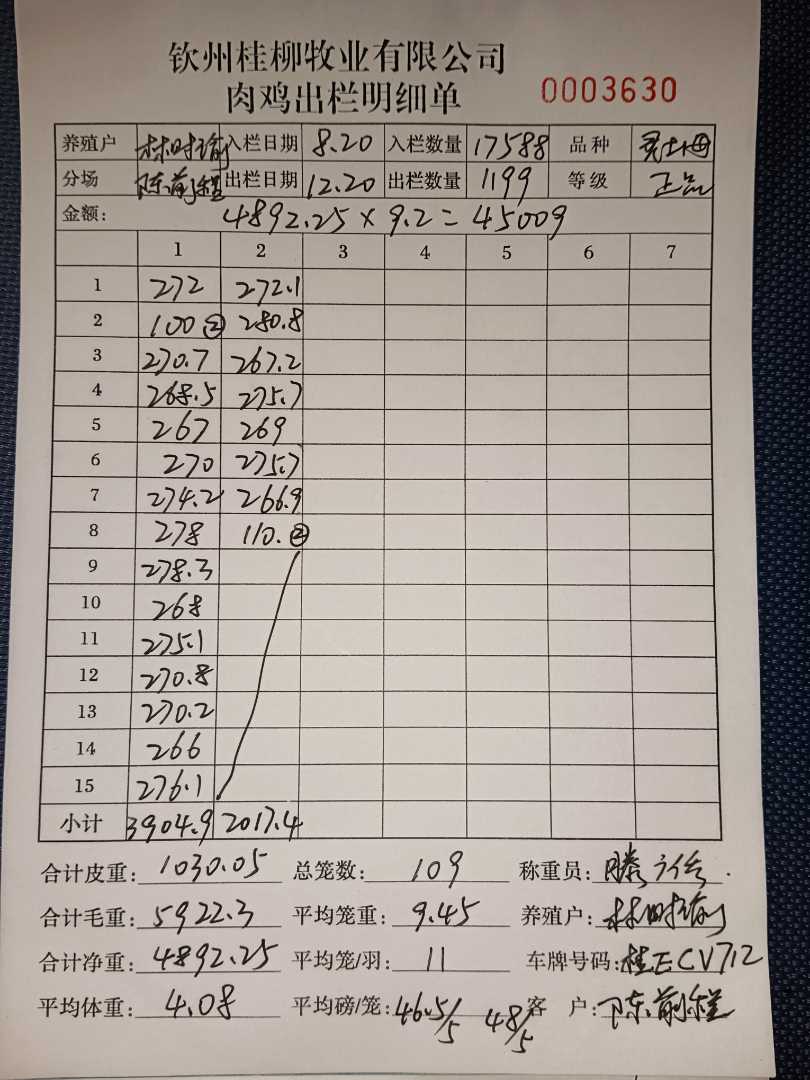 钦州桂柳牧业有限公司
肉鸡出栏明细单 0003630
养殖户 林时瑜 入栏日期 8.20 入栏数量 17588 品种 灵土母
分场 陈前程 出栏日期 12.20 出栏数量 1199 等级 正品
金额: 4892.25 × 9.2 = 45009
1 2 3 4 5 6 7
1 272 272.1
2 100② 280.8
3 270.7 267.2
4 268.5 275.7
5 267 269
6 270 275.7
7 274.2 266.9
8 278 110.②
9 278.3
10 268
11 275.1
12 270.8
13 270.2
14 266
15 276.1
小计 3904.9 2017.4
合计皮重: 1030.05 总笼数: 109 称重员:
合计毛重: 5922.3 平均笼重: 9.45 养殖户: 林时瑜
合计净重: 4892.25 平均笼/羽: 11 车牌号码: 桂ECV712
平均体重: 4.08 平均磅/笼: 46.5/5 48/5 客户: 陈前程